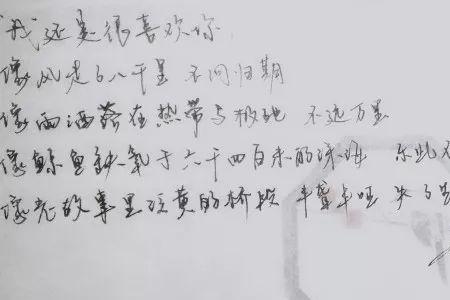 我还是很喜欢你
像风走了八千里 不问归期
像雨洒落在热带与极地 不远万里
像鲸鱼缺氧于六千四百米的深海
像老故事里泛黄的桥段 半聋半哑 失了